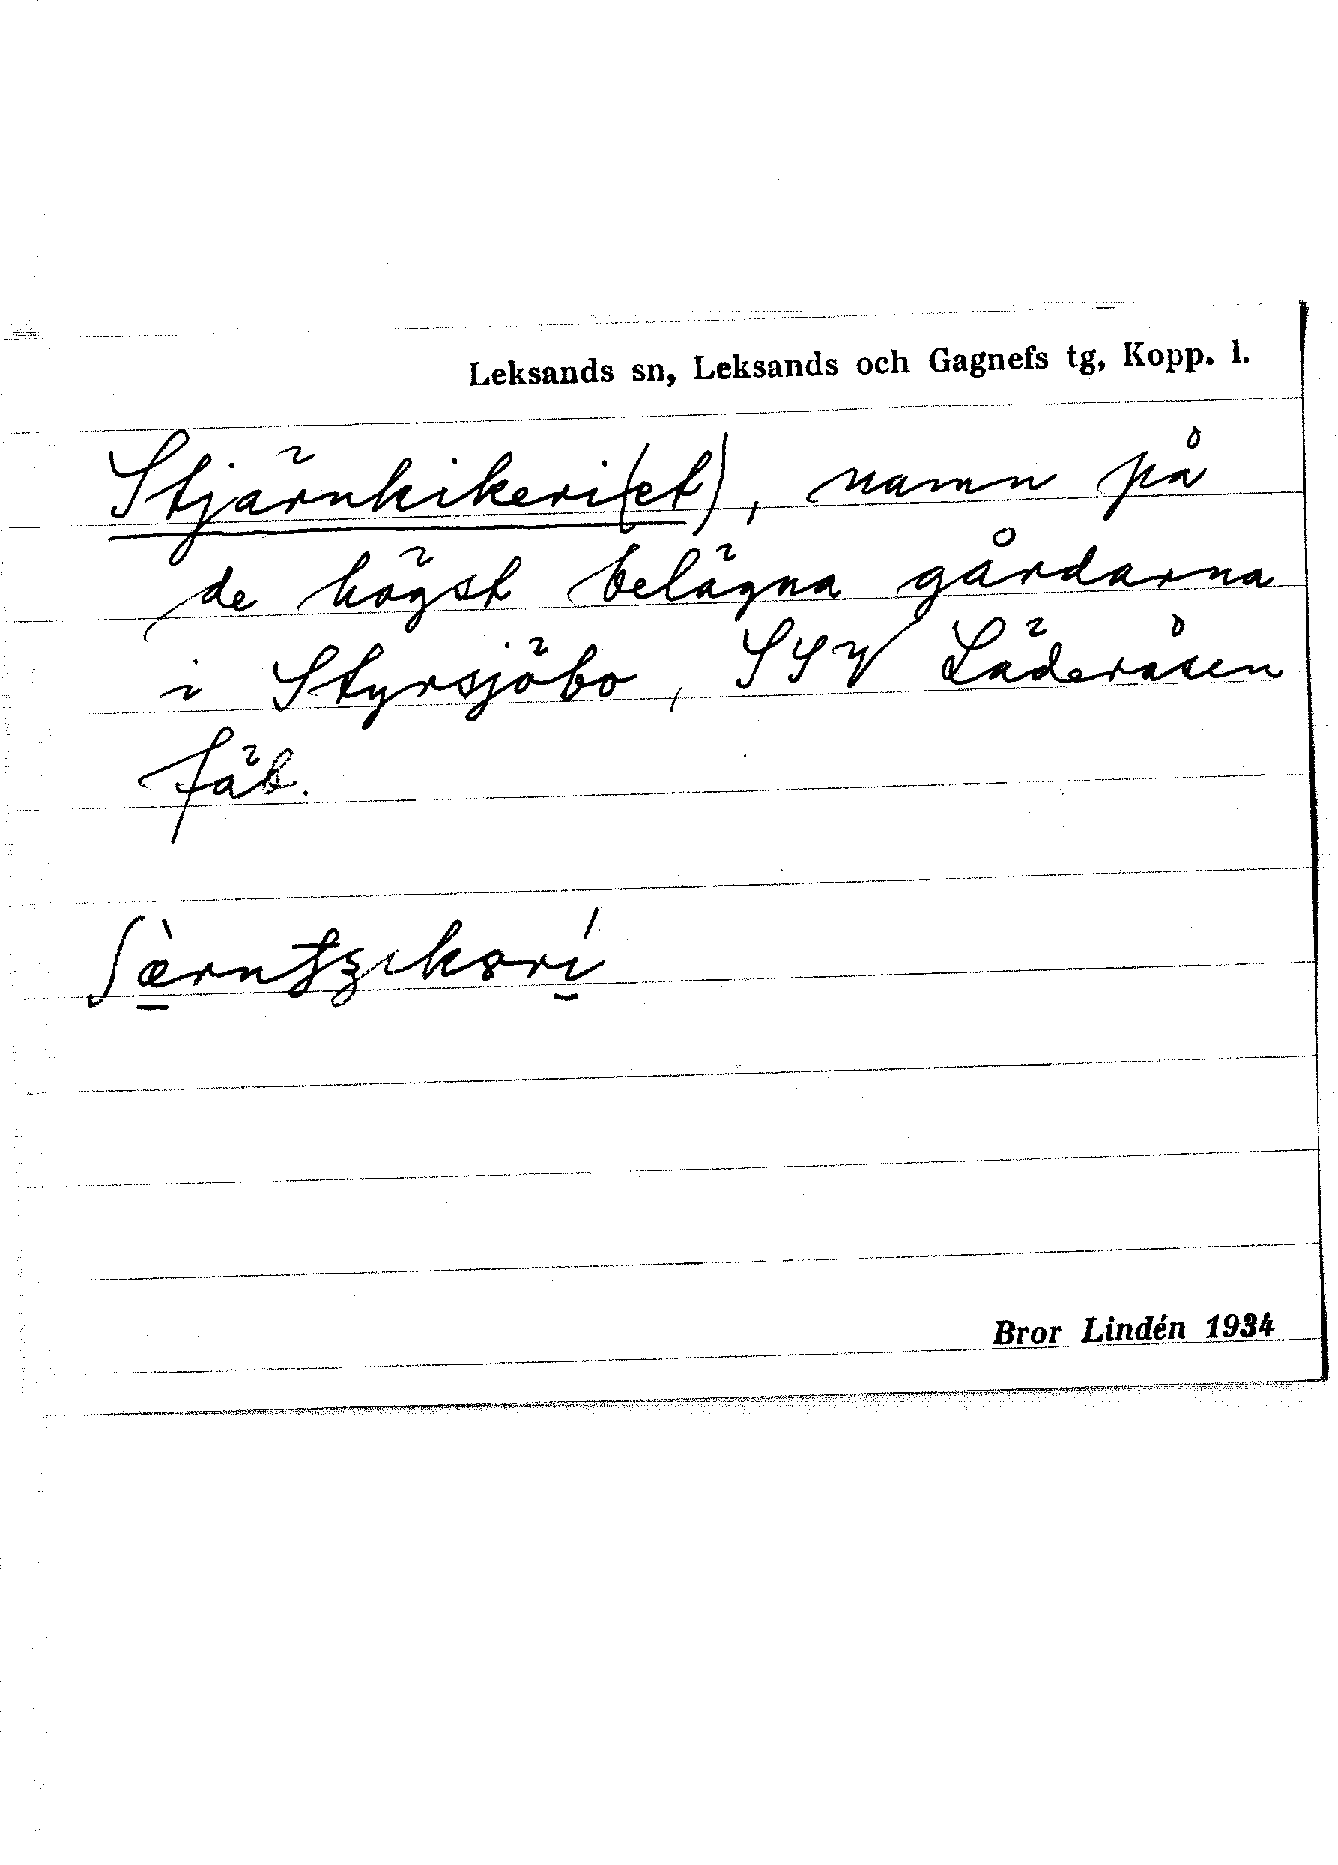 Leksands sn, Leksands och Gagnefs tg, Kopp. l.
Stjärnkikeri(et), namn på
de högst belägna gårdarna
i Styrsjöbo, SSV Läderåsen
fäb.
Bror Lindén 1934